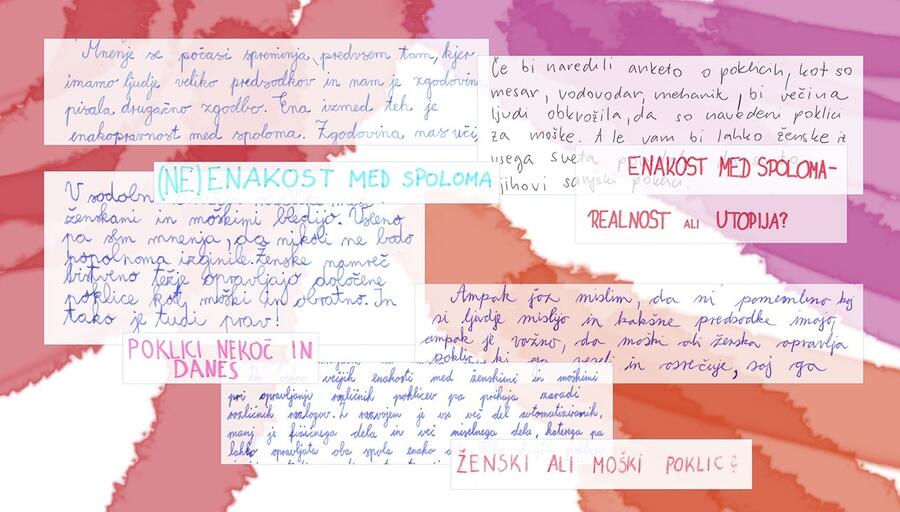 Mnenje se počasi spreminja, predvsem tam, kjer
imamo ljudje veliko predsodkov in nam je zgodovina
pisala drugačno zgodbo. Ena izmed teh je
enakopravnost med spoloma. Zgodovina nas uči,
Če bi naredili anketo o poklicih, kot so
mesar, vodovodar, mehanik, bi večina
ljudi obkrožila, da so navedeni poklici
za moške. Ale vam bi lahko ženske iz
vsega sveta
njihovi sanjski poklic.
ENAKOST MED SPOLOMA-
REALNOST ALI UTOPIJA?
(NE)ENAKOST MED SPOLOMA
V sodobn
ženskami in moškimi bledijo. Vseeno
pa sem mnenja, da nikoli ne bodo
popolnoma izginile. Ženske namreč
bistveno težje opravljajo določene
poklice kot moški in obratno. In
tako je tudi prav!
Ampak jaz mislim, da ni pomembno kaj
si ljudje mislijo in kakšne predsodke imajo,
ampak je važno, da moški ali ženska opravlja
poklic, ki ga veseli in osrečuje, saj ga
POKLICI NEKOČ IN
DANES
večjih enakosti med ženskimi in moškimi
pri opravljanju različnih poklicev pa prihaja zaradi
različnih razlogov. Z razvojem je vse več del avtomatiziranih,
manj je fizičnega dela in več miselnega dela, katerega pa
lahko opravljata oba spola enako
ŽENSKI ALI MOŠKI POKLIC?